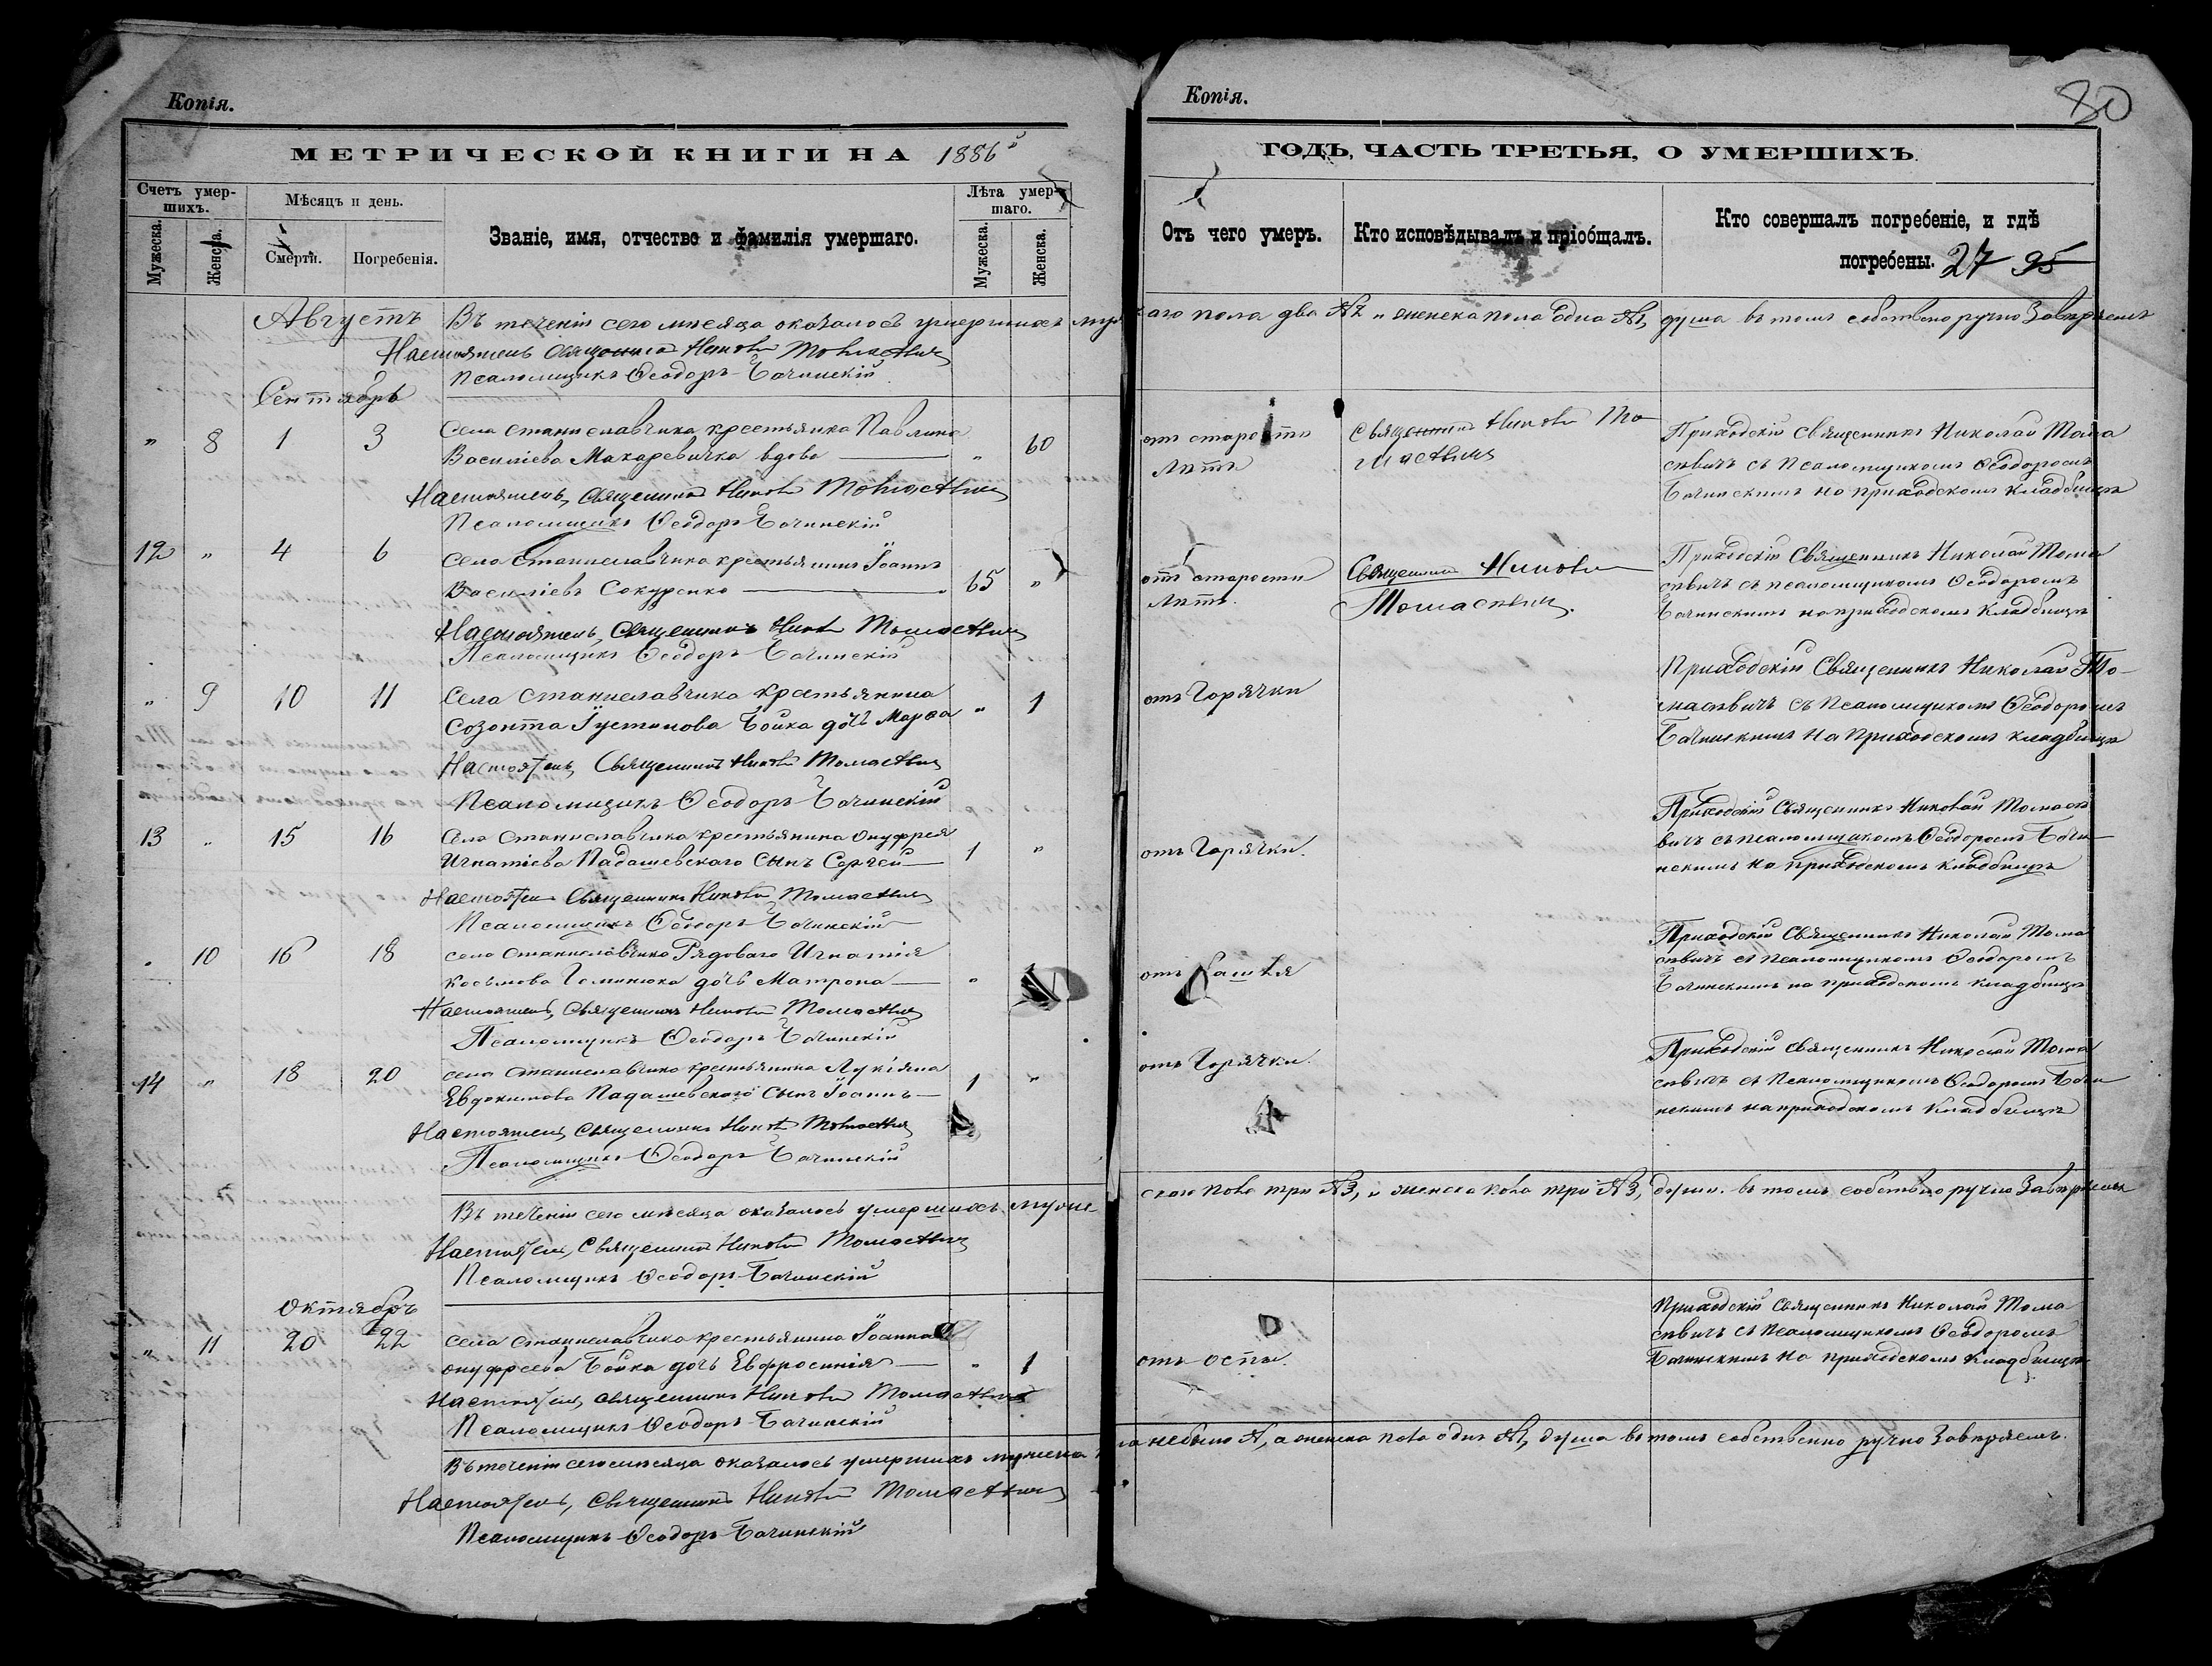 Копія.
МЕТРИЧЕСКОЙ КНИГИ НА 1886й
Счетъ умер-
шихъ.
Мѣсяцъ и день.
Званіе, имя, отчество и фамилія умершаго.
Лѣта умер-
шаго.
Мужеска.
Женска.
Смерти.
Погребенія.
Мужеска.
Женска.
Августъ
Въ теченіи сего мѣсяца оказалось умершихъ муж
Настоятель Священникъ Николай Томасевичъ
Псаломщикъ Ѳеодоръ Бачинскій
Сентябрь
" 8 1 3 Села Станиславчика крестьянка Павлина
Василіева Макаревичка вдова " 60
Настоятель, Священникъ Николай Томасевичъ
Псаломщикъ Ѳеодоръ Бачинскій
12 " 4 6 Села Станиславчика крестьянинъ Іоаннъ
Василіевъ Сокуренко 65 "
Настоятель, Священникъ Николай Томасевичъ
Псаломщикъ Ѳеодоръ Бачинскій
" 9 10 11 Села Станиславчика крестьянина
Созонта Іустинова Бойка дочь Марѳа " 1
Настоятель, Священникъ Николай Томасевичъ
Псаломщикъ Ѳеодоръ Бачинскій
13 " 15 16 Села Станиславчика крестьянина Онуфрея
Игнатіева Падашевскаго сынъ Сергей 1 "
Настоятель Священникъ Николай Томасевичъ
Псаломщикъ Ѳеодоръ Бачинскій
" 10 16 18 села Станиславчика Рядоваго Игнатія
Косьмова дочь Матрона "
Настоятель, Священникъ Николай Томасевичъ
Псаломщикъ Ѳеодоръ Бачинскій
14 " 18 20 села Станиславчика крестьянина Лукіяна
Евдокимова Падашевскаго сынъ Іоаннъ 1 "
Настоятель, Священникъ Николай Томасевичъ
Псаломщикъ Ѳеодоръ Бачинскій
Въ теченіи сего мѣсяца оказалось умершихъ муже-
Настоятель, Священникъ Николай Томасевичъ
Псаломщикъ Ѳеодоръ Бачинскій
Октябрь
" 11 20 22 села Станиславчика крестьянина Іоанна
Онуфреева Бойка дочь Евфросинія " 1
Настоятель, Священникъ Николай Томасевичъ
Псаломщикъ Ѳеодоръ Бачинскій
Въ теченіи сего мѣсяца оказалось умершихъ мужеска
Настоятель, Священникъ Николай Томасевичъ
Псаломщикъ Ѳеодоръ Бачинскій
Копія.
80
ГОДЪ, ЧАСТЬ ТРЕТЬЯ, О УМЕРШИХЪ.
Отъ чего умеръ.
Кто исповѣдывалъ и пріобщалъ.
Кто совершалъ погребеніе, и гдѣ
погребены. 27 95
каго пола два № 2 и женска пола одна № 1, душа въ томъ собственоручно Завѣряемъ
отъ старости
лѣтъ
Священникъ Николай То-
масевичъ
Приходскій священникъ Николай Тома
севичъ съ псаломщикомъ Ѳеодоромъ
Бачинскимъ на приходскомъ кладбищѣ
отъ старости
лѣтъ.
Священникъ Николай
Томасевичъ.
Приходскій Священникъ Николай Тома
севичъ съ псаломщикомъ Ѳеодоромъ
Бачинскимъ на приходскомъ кладбищѣ
отъ Горячки
Приходскій Священникъ Николай То-
масевичъ съ Псаломщикомъ Ѳеодоромъ
Бачинскимъ на Приходскомъ кладбищѣ
отъ Горячки.
Приходскій Священникъ Николай Томасе
вичъ съ псаломщикомъ Ѳеодоромъ Бачи-
нскимъ на приходскомъ кладбищѣ
отъ кашля
Приходскій Священникъ Николай Тома
севичъ съ Псаломщикомъ Ѳеодоромъ
Бачинскимъ на приходскомъ кладбищѣ
отъ Горячки.
Приходскій священникъ Николай Тома
севичъ съ Псаломщикомъ Ѳеодоромъ Бачи
нскимъ на приходскомъ кладбищѣ
скаго пола три № 3, и женска пола три № 3, души. въ томъ собственоручно Завѣряемъ
отъ оспы.
Приходскій священникъ Николай Тома
севичъ съ Псаломщикомъ Ѳеодоромъ
Бачинскимъ на приходскомъ кладбищѣ
ла небыло №, а женска пола одна № 1, душа въ томъ собственно ручно Завѣряемъ.